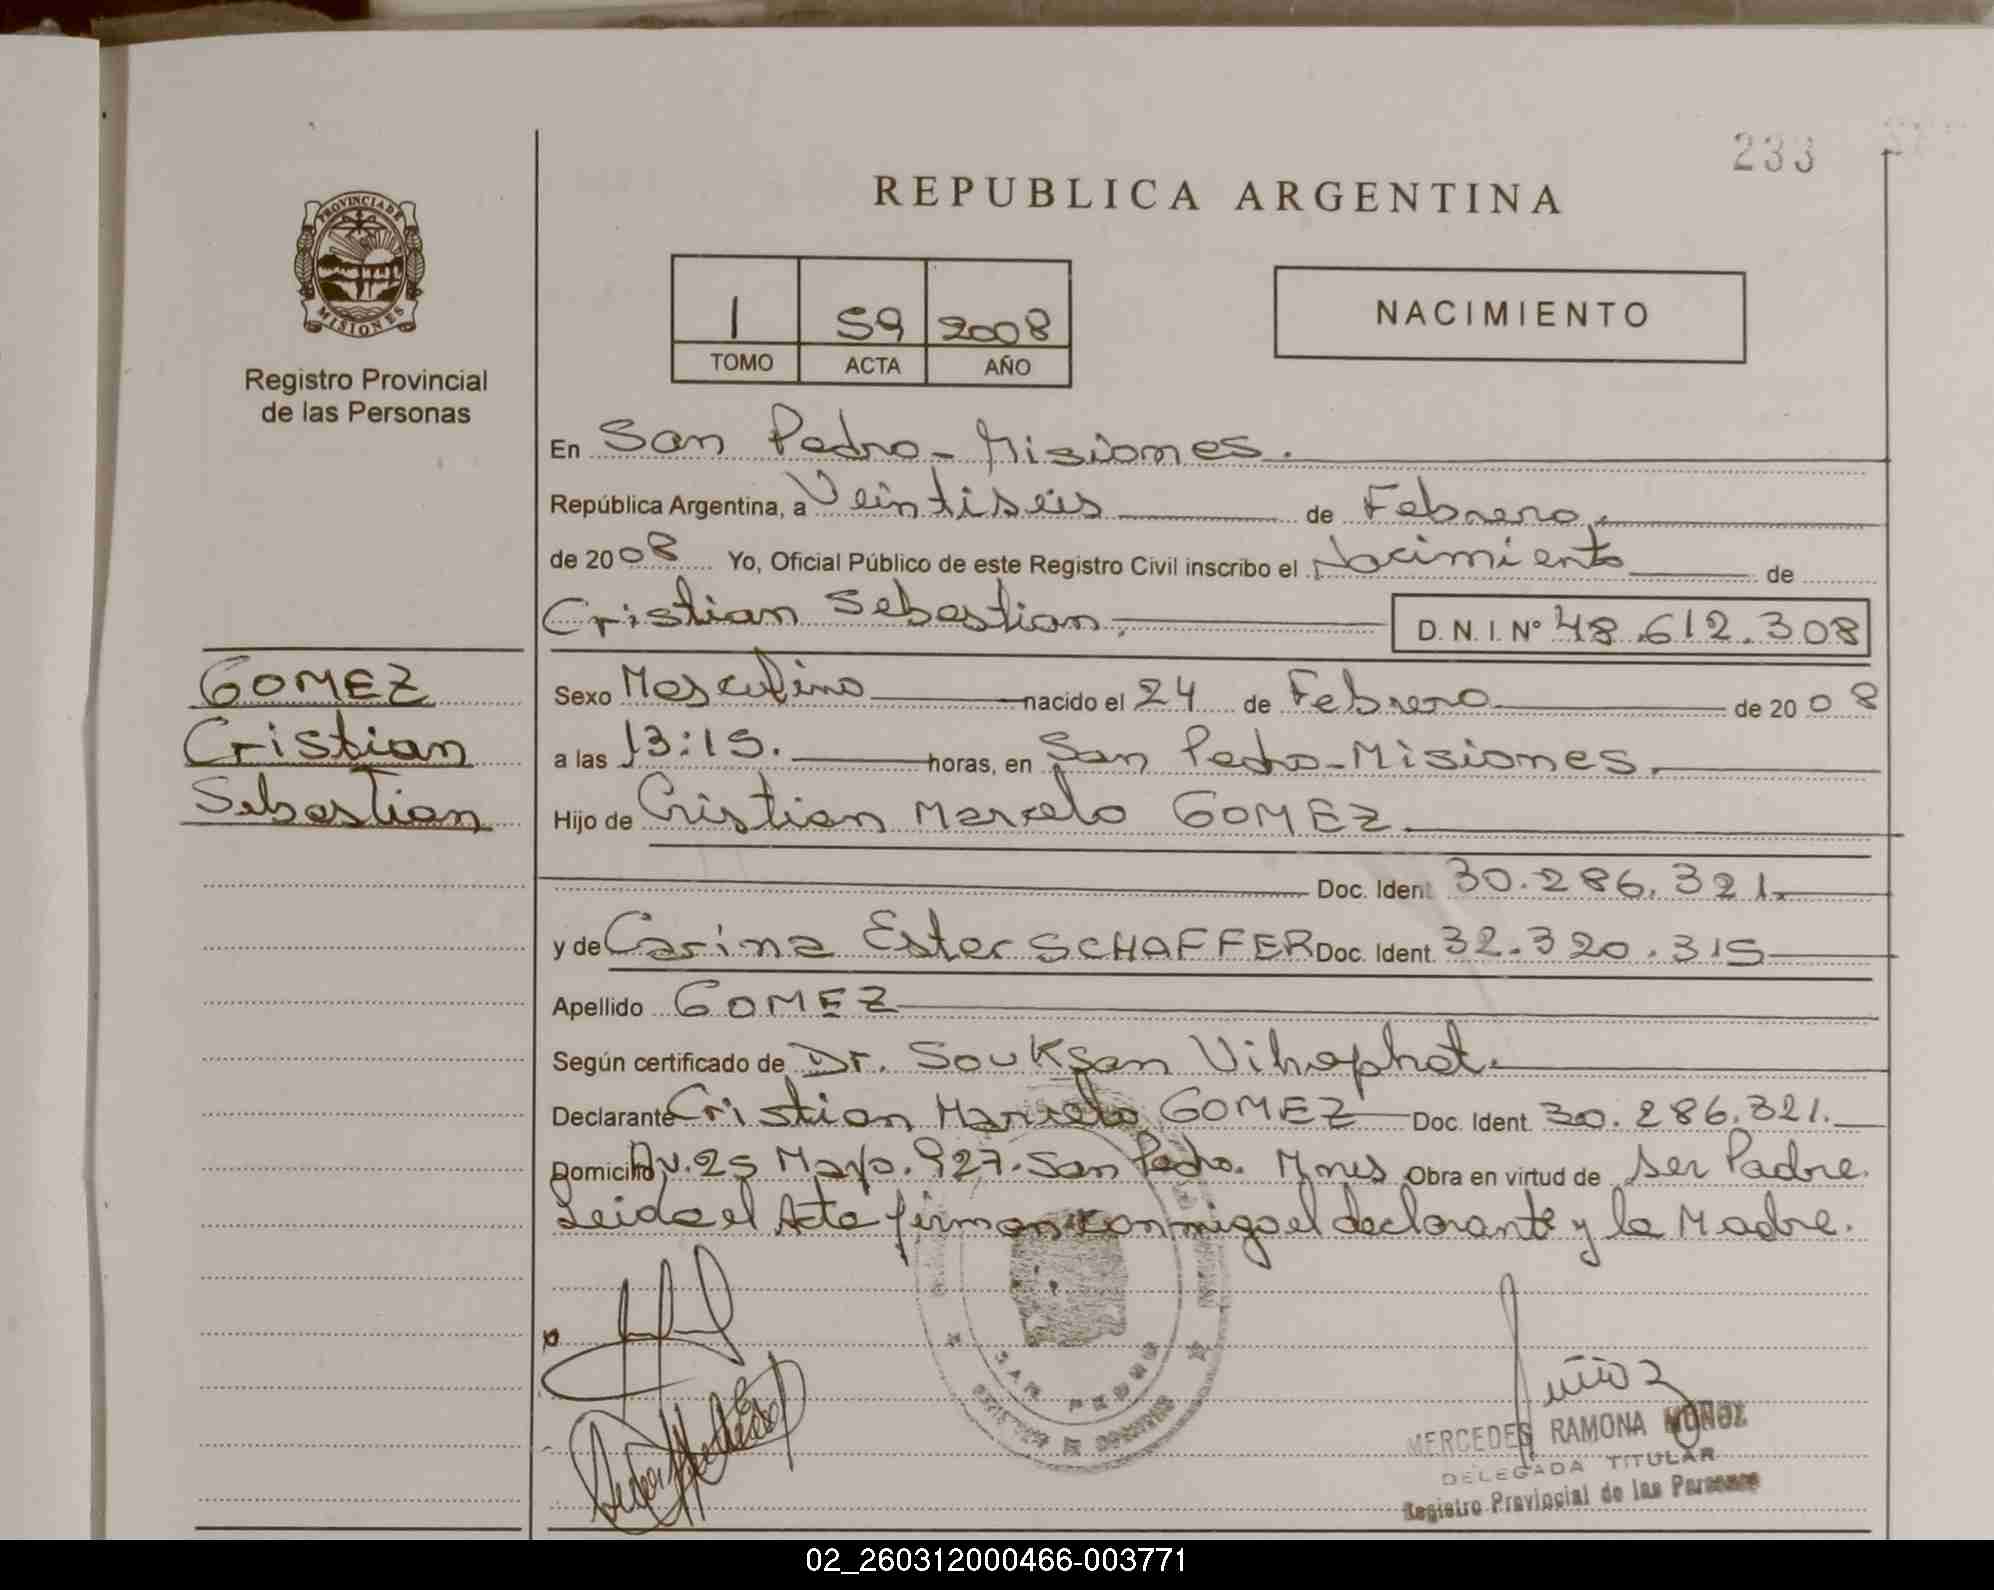 233
PROVINCIA DE
MISIONES
Registro Provincial
de las Personas
REPUBLICA ARGENTINA
1 59 2008
TOMO ACTA AÑO
NACIMIENTO
En San Pedro - Misiones.
República Argentina, a Veintiseis de Febrero.
de 2008 Yo, Oficial Público de este Registro Civil inscribo el Nacimiento de
Cristian Sebastian. D.N.I. Nº 48.612.308
GOMEZ
Cristian
Sebastian
Sexo Masculino nacido el 24 de Febrero de 2008
a las 13:15. horas, en San Pedro-Misiones.
Hijo de Cristian Marcelo GOMEZ
Doc. Ident 30.286.321.
y de Carina Ester SCHAFFER Doc. Ident. 32.320.315
Apellido GOMEZ
Según certificado de Dr. Souksan Vihaphat.
Declarante Cristian Marcelo GOMEZ Doc. Ident. 30.286.321.
Domicilio Av. 25 Mayo. 927. San Pedro. Mnes Obra en virtud de ser Padre.
Leida el Acta firman conmigo el declarante y la Madre.
SAN PEDRO
MERCEDES RAMONA MUÑOZ
DELEGADA TITULAR
Registro Provincial de las Personas
02_260312000466-003771